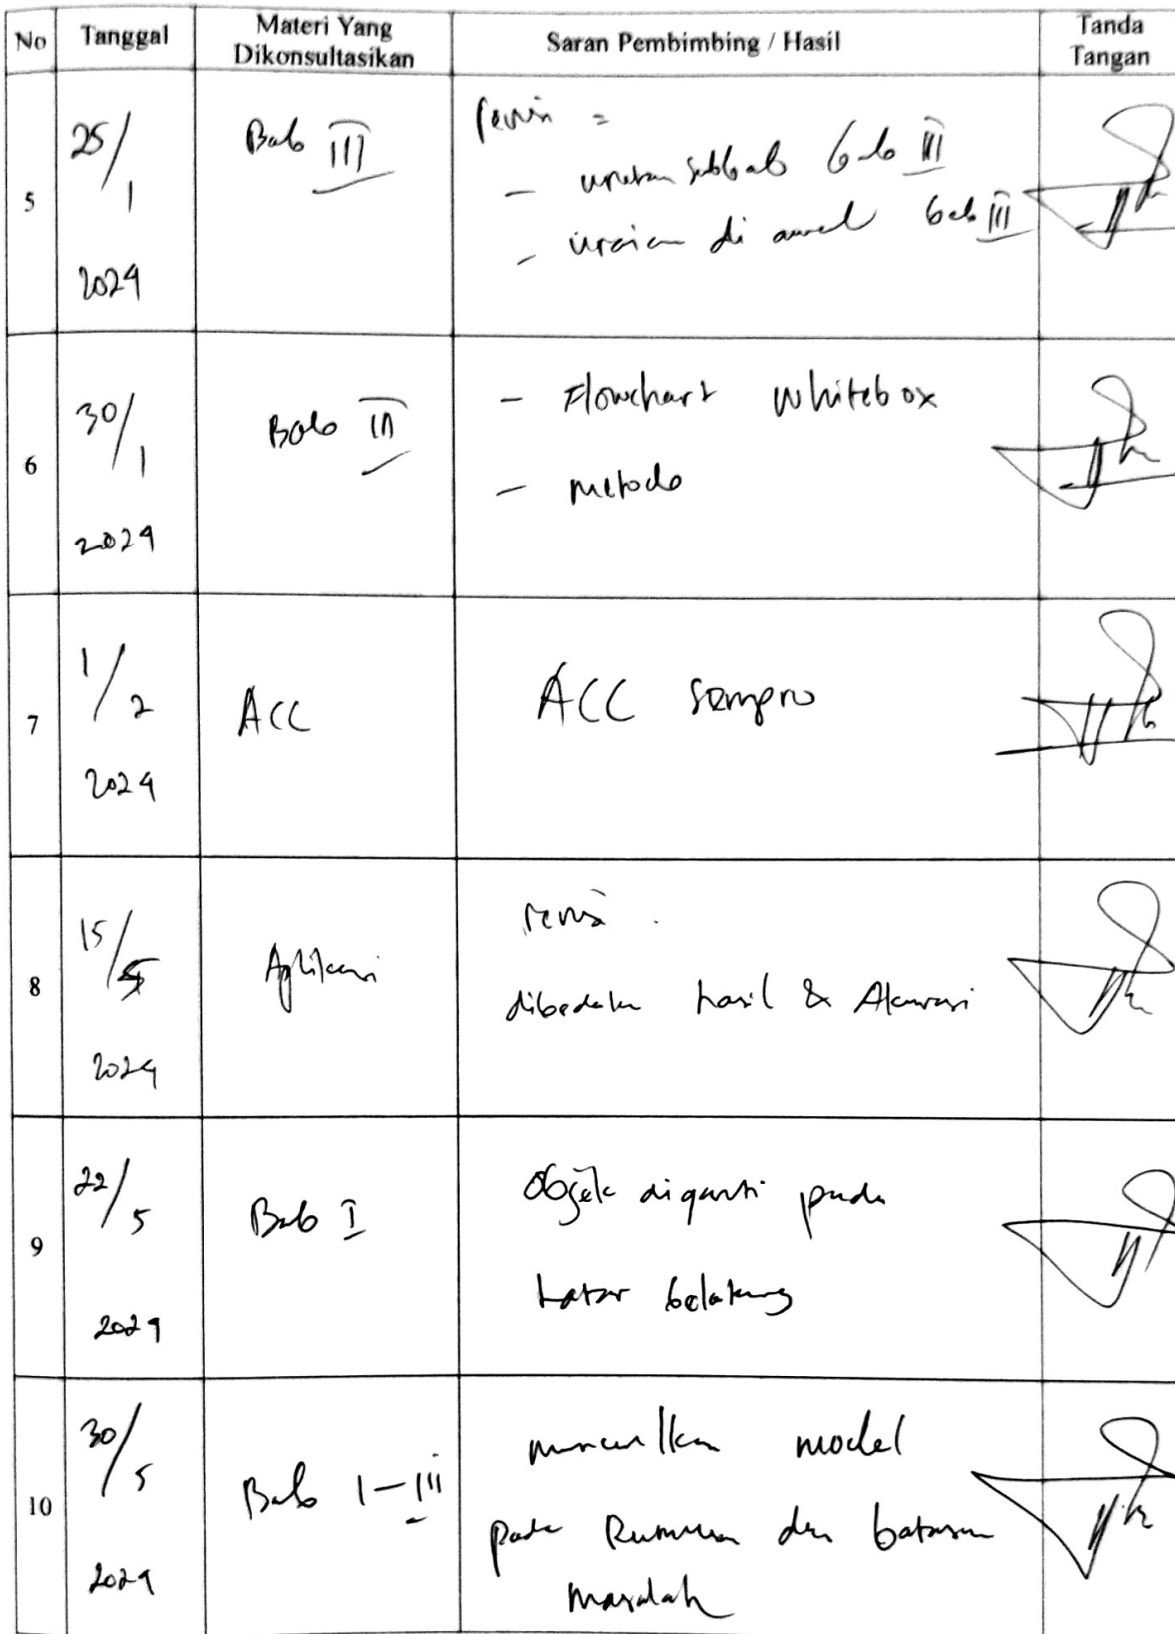 No Tanggal Materi Yang Dikonsultasikan Saran Pembimbing / Hasil Tanda Tangan
5 25/1 2024 Bab III
revisi =
- urutan subbab bab III
- uraian di awal bab III
6 30/1 2024 Bab III
- Flowchart whitebox
- metode
7 1/2 2024 ACC ACC sempro
8 15/5 2024 Aplikasi
revisi
dibedakan hasil & Akurasi
9 22/5 2024 Bab I
Objek diganti pada
Latar belakang
10 30/5 2024 Bab I - III
munculkan model
pada Rumusan dan batasan
masalah